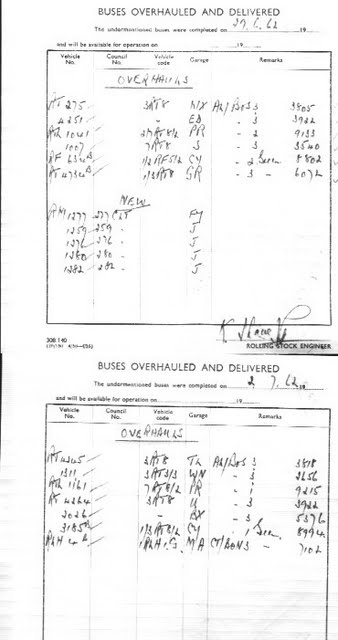 BUSES OVERHAULED AND DELIVERED
The undermentioned buses were completed on 29.6.62 19
and will be available for operation on 19
Vehicle No. Council No. Vehicle code Garage Remarks
OVERHAULS
RT 275 3RT8 3 3805
4251 - ED - 3 3922
PR - 2 9133
1007 7RT8 J - 3 3540
RF 1/2 RF5/2 CY - 2 8802
RT 4734 1/3RT8 GR - 3 - 6072
NEW
RM 1277 277 CLT FY
1259 259 " J
1276 276 " J
1280 280 " J
1282 282 " J
ROLLING STOCK ENGINEER
308 140
BUSES OVERHAULED AND DELIVERED
The undermentioned buses were completed on 2.7.62 19
and will be available for operation on 19
Vehicle No. Council No. Vehicle code Garage Remarks
OVERHAULS
RT 4245 3RT8 3 3818
1311 3RT3/3 WN - 3 2656
1161 7 PR - 1 9215
RT 4264 3RT8 U - 3 3922
2026 - BX - 3 5376
3185 CY - 1 8994
M/A 3 - 7102